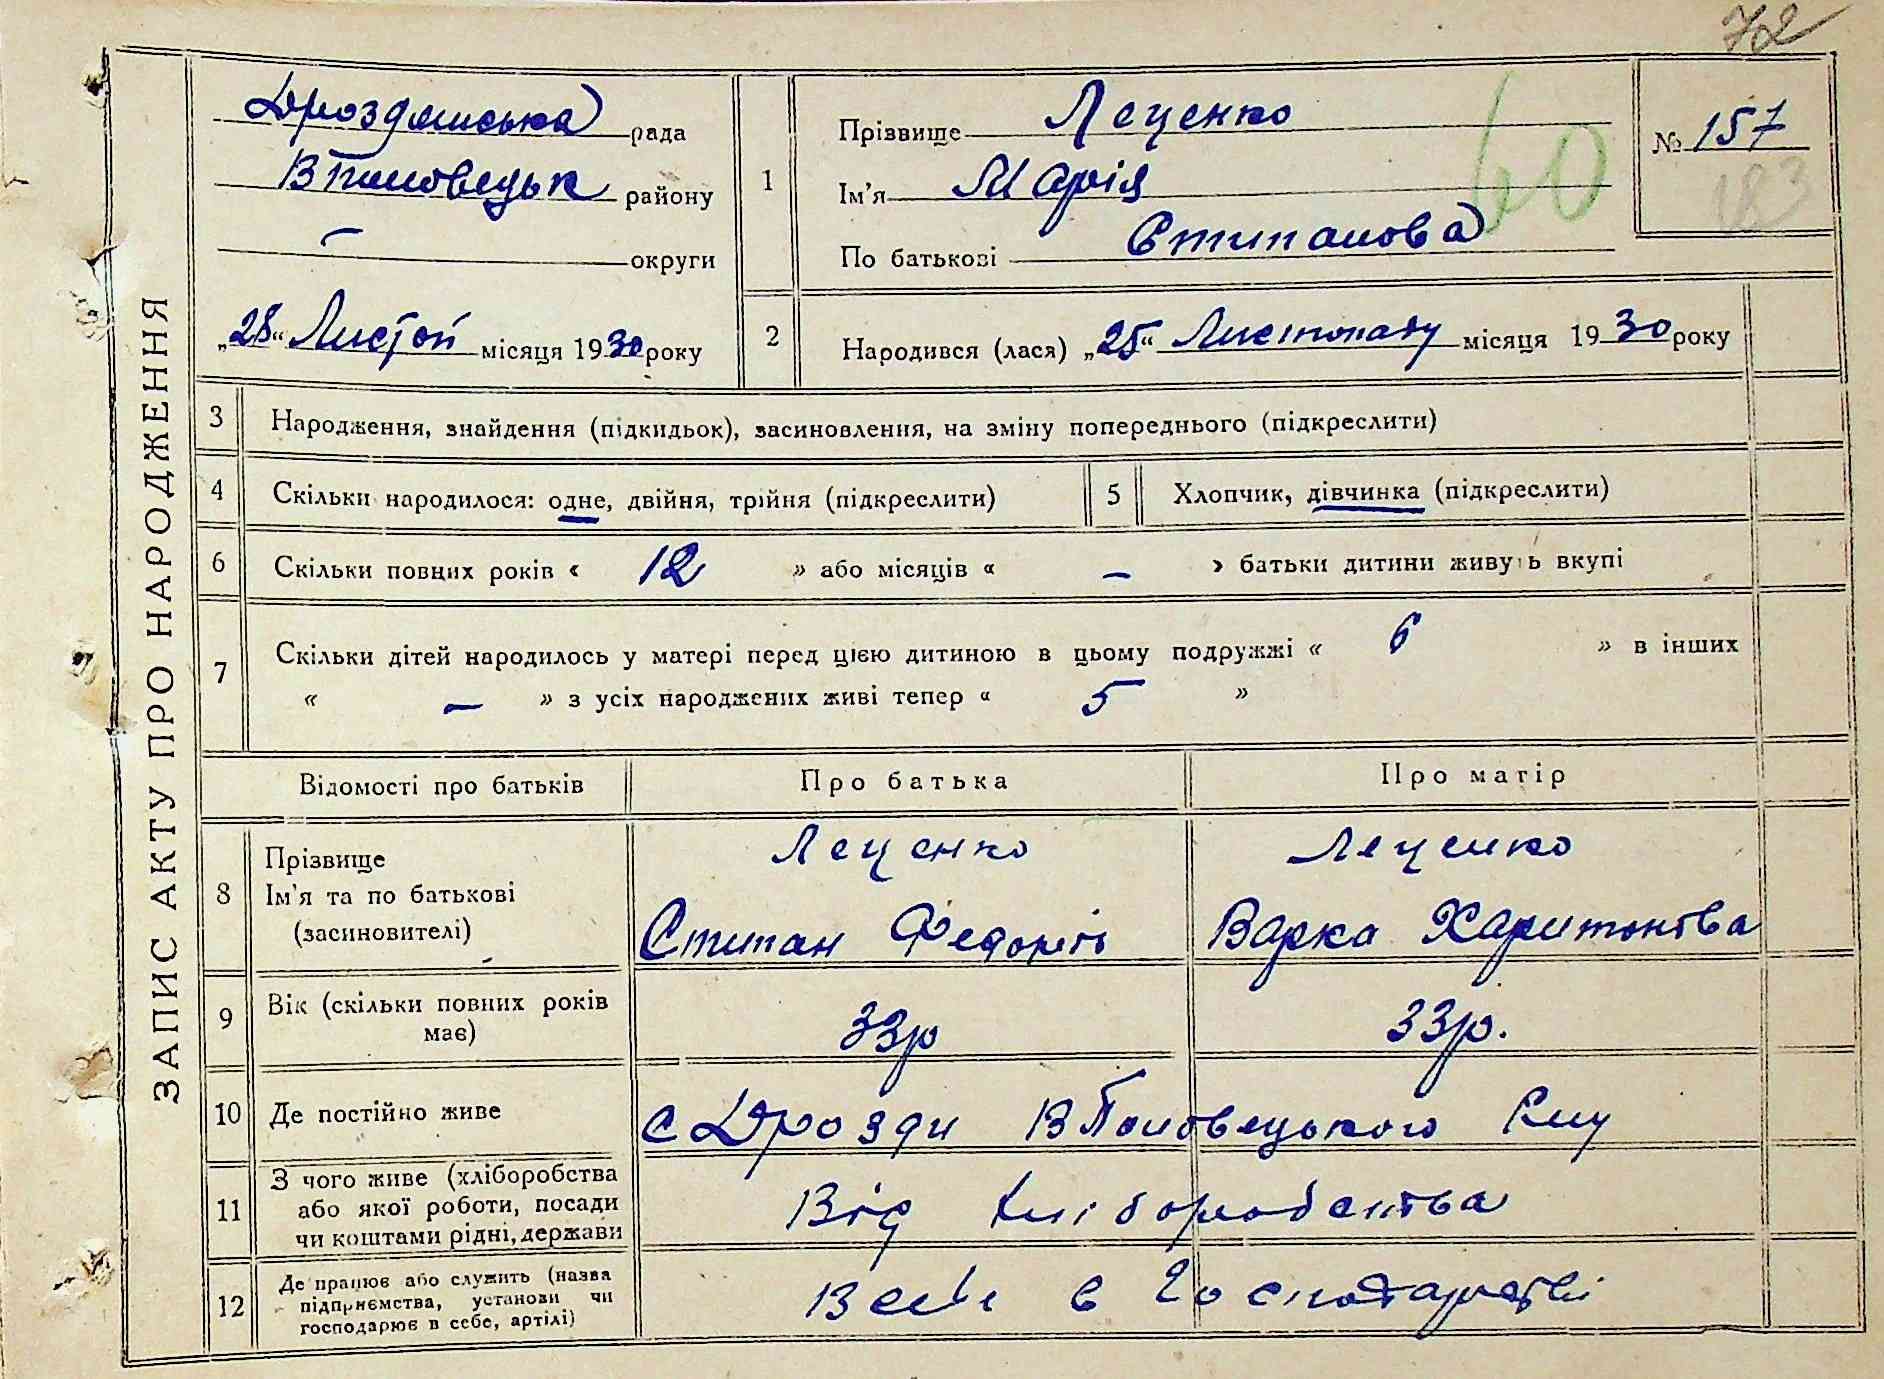 72
ЗАПИС АКТУ ПРО НАРОДЖЕННЯ
Дроздянська рада
В Половецьк району
– округи
„28“ Листоп місяця 1930 року
1
Прізвище Леценко
Ім'я Марія
По батькові Степанова
60
№ 157
183
2
Народився (лася) „25“ Листопаду місяця 1930 року
3 Народження, знайдення (підкидьок), засиновлення, на зміну попереднього (підкреслити)
4 Скільки народилося: одне, двійня, трійня (підкреслити)
5 Хлопчик, дівчинка (підкреслити)
6 Скільки повних років « 12 » або місяців « – » батьки дитини живуть вкупі
7 Скільки дітей народилось у матері перед цією дитиною в цьому подружжі « 6 » в інших
« – » з усіх народжених живі тепер « 5 »
Відомості про батьків Про батька Про матір
8 Прізвище Леценко Леценко
Ім'я та по батькові Степан Федоров Варка Харитонова
(засиновителі)
9 Вік (скільки повних років має) 33р 33р.
10 Де постійно живе с Дрозди В Половецького
11 З чого живе (хліборобства або якої роботи, посади чи коштами рідні, держави Від хліборобства
12 Де працює або служить (назва підприємства, установи чи господарює в себе, артілі) В себе в господарстві